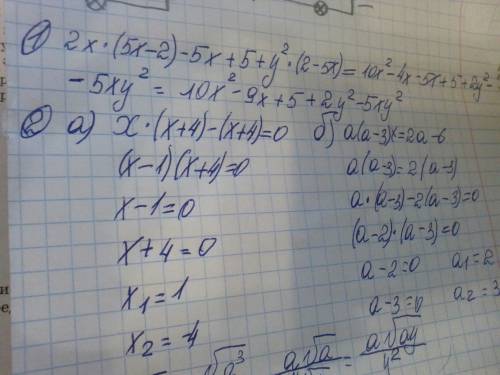 ① 2x·(5x-2)-5x+5+y²·(2-5x)=10x²-4x-5x+5+2y²-
-5xy²=10x²-9x+5+2y²-5xy²
② а) x·(x+4)-(x+4)=0
(x-1)(x+4)=0
x-1=0
x+4=0
x₁=1
x₂=-4
б) a(a-3)x=2a-6
a(a-3)=2(a-3)
a·(a-3)-2(a-3)=0
(a-2)·(a-3)=0
a-2=0 a₁=2
a-3=0 a₂=3